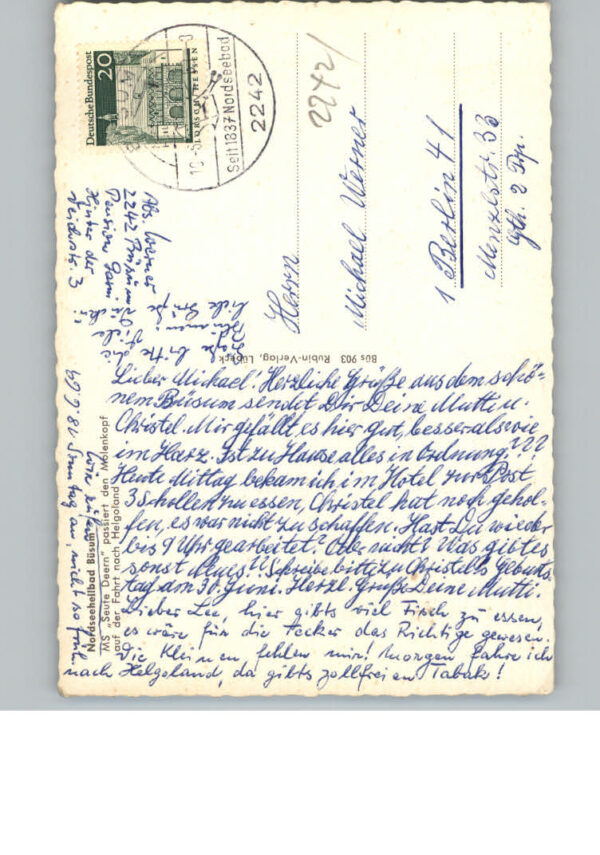 Deutsche Bundespost
20
LORSCH HESSEN
Seit 1837 Nordseebad
2242
2242
Herrn
Michael Werner
1 Berlin 41
Menzelstr. 33
gth. 2 Trp.
Abs. Werner
2242 Büsum
Pension
Hinter der
3
bitte die
Blumen!
viele Grüße
Büs 903 Rubin-Verlag, Lübeck
Lieber Michael! Herzliche Grüße aus dem schö-
nem Büsum sendet Dir Deine Mutti u.
Christel. Mir gefällt es hier gut, besser als wie
im Harz. Ist zu Hause alles in Ordnung???
Heute Mittag bekam ich im Hotel zur Post
3 Schollen zu essen, Christel hat noch gehol-
fen, es war nicht zu schaffen. Hast Du wieder
bis 9 Uhr gearbeitet? Oder nicht? Was gibt es
sonst Neues? Schreibe bitte zu Christels Geburts-
tag am 30. Juni. Herzl. Grüße Deine Mutti.
Lieber Leo, hier gibts viel Fisch zu essen,
es wäre für die Tecker das Richtige gewesen.
Die Kleinen fehlen mir! Morgen fahre ich
nach Helgoland, da gibts zollfreien Tabak!
Nordseeheilbad Büsum
MS „Seute Deern“ passiert den Molenkopf
auf der Fahrt nach Helgoland
Sonntag an, nicht so früh